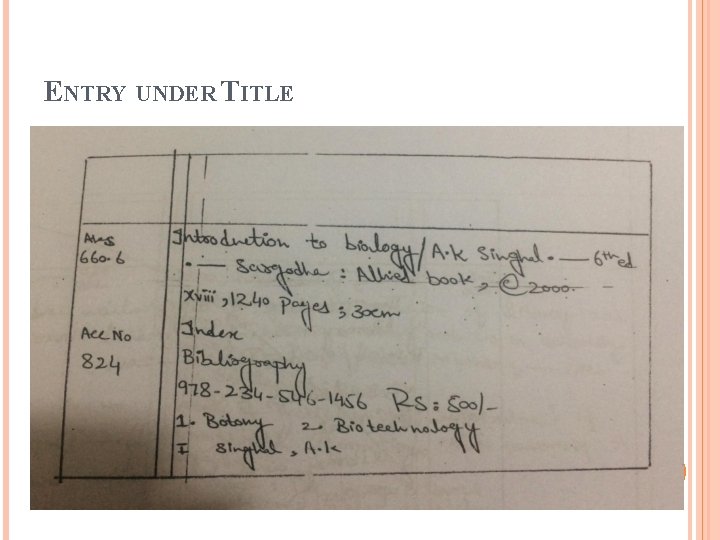 ENTRY UNDER TITLE
Introduction to biology/A.K Singhal. — 6th ed
660.6
. — Sargodha : Allied book, © 2000. —
xviii, 1240 pages ; 30cm
Acc No Index
824 Bibliography
978-234-546-1456 RS: 500/-
1. Botony 2. Biotechnology
I Singhal, A.K